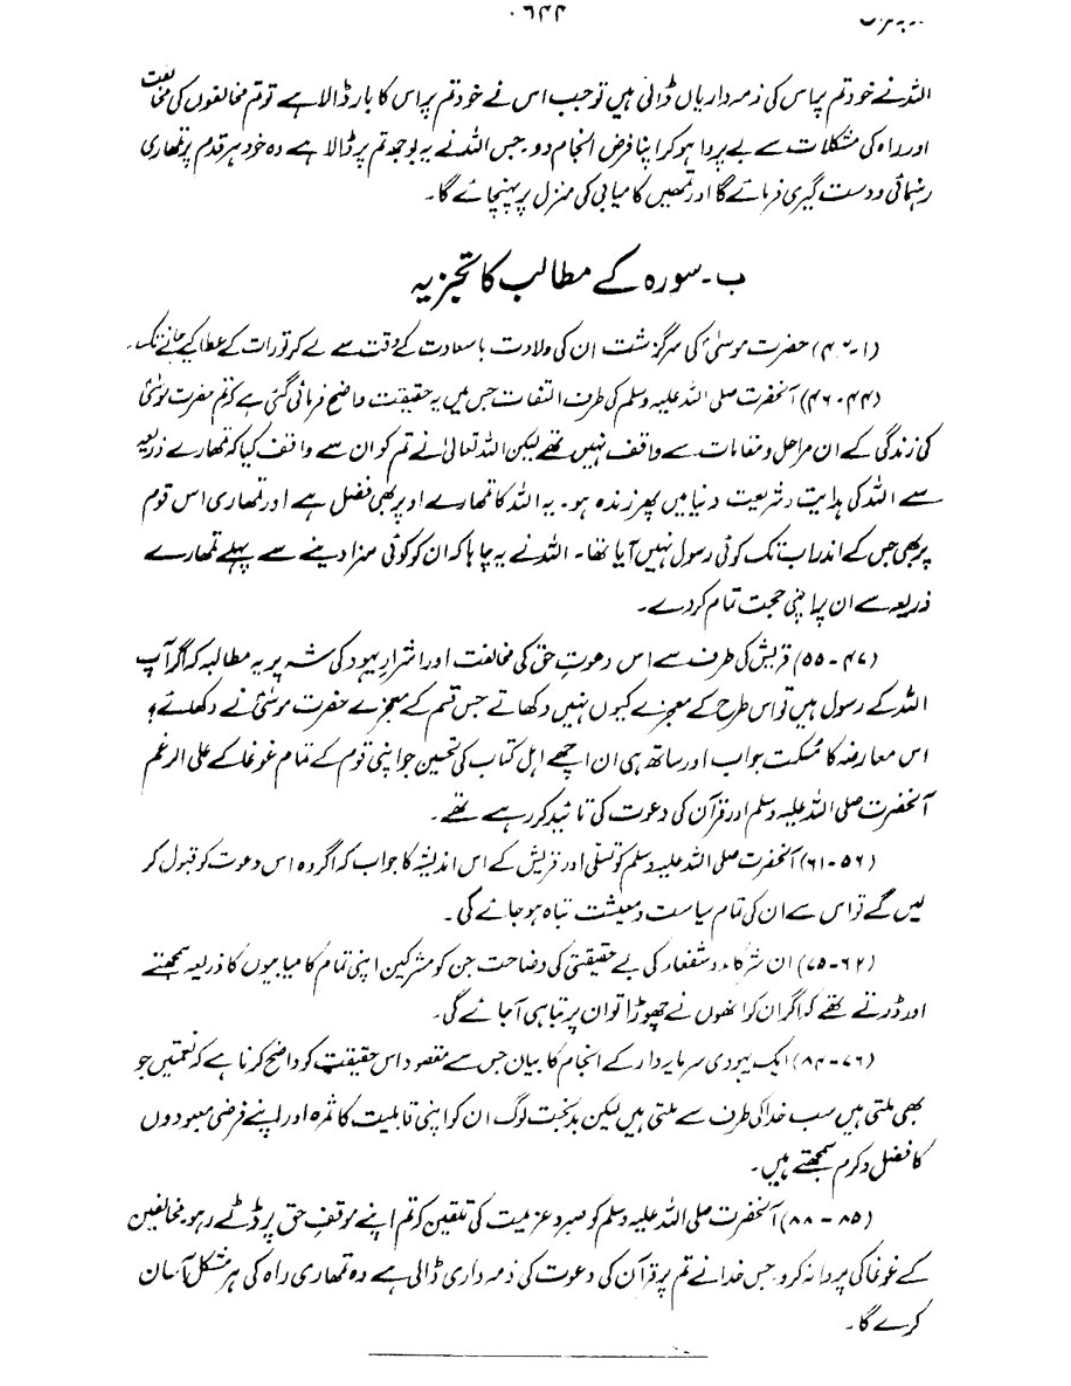 ۶۴۴
اللہ نے خود تم پر اس کی ذمہ داریاں ڈالی ہیں تو جب اس نے خود تم پر اس کا بار ڈالا ہے تو تم مخالفوں کی مخالفت
اور راہ کی مشکلات سے بے پروا ہو کر اپنا فرض انجام دو۔ جس اللہ نے یہ بوجھ تم پر ڈالا ہے وہ خود ہر قدم پر تمھاری
رہنمائی و دست گیری فرمائے گا اور تمھیں کامیابی کی منزل پر پہنچائے گا۔
ب۔ سورہ کے مطالب کا تجزیہ
(۱-۴۳) حضرت موسیٰؑ کی سرگزشت ان کی ولادت باسعادت کے وقت سے لے کر تورات کے عطا کیے جانے تک۔
(۴۴-۴۶) آنحضرت صلی اللہ علیہ وسلم کی طرف التفات جس میں یہ حقیقت واضح فرمائی گئی ہے کہ تم حضرت موسٰیؑ
کی زندگی کے ان مراحل و مقامات سے واقف نہیں تھے لیکن اللہ تعالیٰ نے تم کو ان سے واقف کیا کہ تمھارے ذریعہ
سے اللہ کی ہدایت و شریعت دنیا میں پھر زندہ ہو۔ یہ اللہ کا تمھارے اوپر بھی فضل ہے اور تمھاری اس قوم
پر بھی جس کے اندر اب تک کوئی رسول نہیں آیا تھا۔ اللہ نے یہ چاہا کہ ان کو کوئی سزا دینے سے پہلے تمھارے
ذریعہ سے ان پر اپنی حجت تمام کر دے۔
(۴۷-۵۵) قریش کی طرف سے اس دعوتِ حق کی مخالفت اور اشرارِ یہود کی شہ پر یہ مطالبہ کہ اگر آپ
اللہ کے رسول ہیں تو اس طرح کے معجزے کیوں نہیں دکھاتے جس قسم کے معجزے حضرت موسٰیؑ نے دکھلائے؟
اس معارضہ کا مُسکت جواب اور ساتھ ہی ان اچھے اہل کتاب کی تحسین جو اپنی قوم کے تمام غوغا کے علی الرغم
آنحضرت صلی اللہ علیہ وسلم اور قرآن کی دعوت کی تائید کر رہے تھے۔
(۵۶-۶۱) آنحضرت صلی اللہ علیہ وسلم کو تسلّی اور قریش کے اس اندیشہ کا جواب کہ اگر وہ اس دعوت کو قبول کر
لیں گے تو اس سے ان کی تمام سیاست و معیشت تباہ ہو جائے گی۔
(۶۲-۷۵) ان شرکاء و شفعاء کی بے حقیقتی کی وضاحت جن کو مشرکین اپنی تمام کامیابیوں کا ذریعہ سمجھتے
اور ڈرتے تھے کہ اگر ان کو انھوں نے چھوڑا تو ان پر تباہی آ جائے گی۔
(۷۶-۸۴) ایک یہودی سرمایہ دار کے انجام کا بیان جس سے مقصود اس حقیقت کو واضح کرنا ہے کہ نعمتیں جو
بھی ملتی ہیں سب خدا کی طرف سے ملتی ہیں لیکن بدبخت لوگ ان کو اپنی قابلیت کا ثمرہ اور اپنے فرضی معبودوں
کا فضل و کرم سمجھتے ہیں۔
(۸۵-۸۸) آنحضرت صلی اللہ علیہ وسلم کو صبر و عزیمت کی تلقین کہ تم اپنے موقفِ حق پر ڈٹے رہو۔ مخالفین
کے غوغا کی پروا نہ کرو۔ جس خدا نے تم پر قرآن کی دعوت کی ذمہ داری ڈالی ہے وہ تمھاری راہ کی ہر مشکل آسان
کرے گا۔